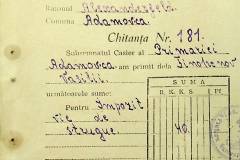 Raionul Alexanderfeld
Comuna Adamovca
Chitanța Nr. 181.
Subsemnatul Casier al Primăriei
Adamovca am primit dela
Vasilii
SUMA
R. K. K. S. P.
următoarele sume:
Pentru Impozit
vie de
strugure. 40.